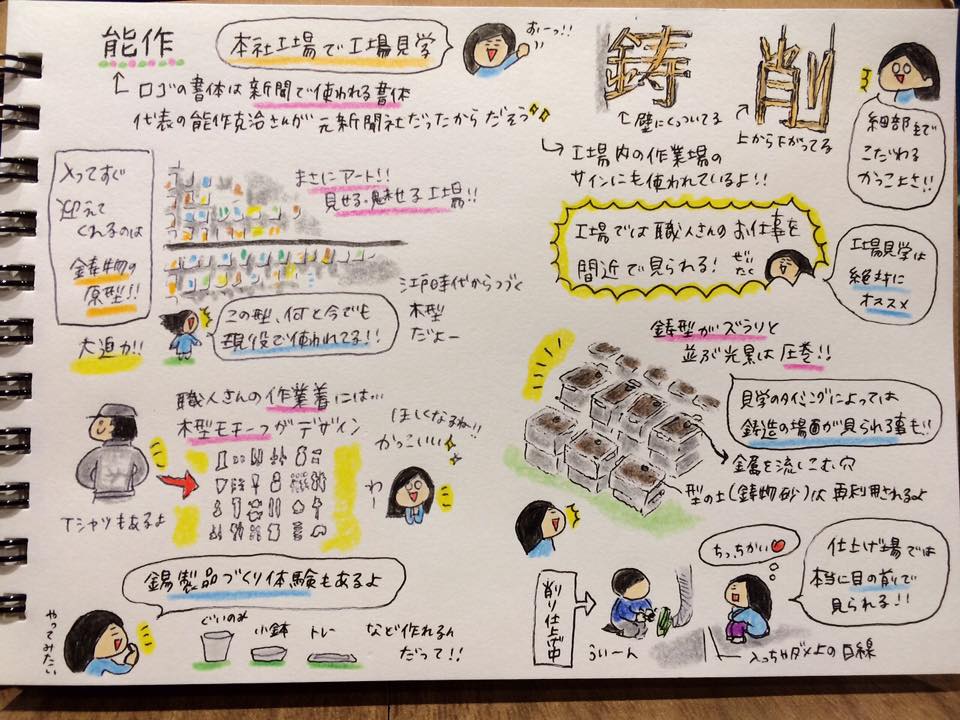 能作
本社工場で工場見学
おーっ!!
ロゴの書体は新聞で使われる書体
代表の能作克治さんが元新聞社だったからだそう
入ってすぐ
迎えて
くれるのは
鋳物の
原型!!
大迫力!!
まさにアート!!
見せる・魅せる工場!!
江戸時代からつづく
木型
だよー
この型、何と今でも
現役で使われてる!!
職人さんの作業着には…
木型モチーフがデザイン
Tシャツもあるよ
ほしくなるね!!
かっこいい
わー
錫製品づくり体験もあるよ
やってみたい
ぐいのみ
小鉢
トレー
など作れるん
だって!!
鋳
削
壁にくっついてる
上から下がってる
工場内の作業場の
サインにも使われているよ!!
細部まで
こだわる
かっこよさ!!
工場では職人さんのお仕事を
間近で見られる!
ぜいたく
工場見学は
絶対に
オススメ
鋳型がズラリと
並ぶ光景は圧巻!!
見学のタイミングによっては
鋳造の場面が見られる事も!!
金属を流しこむ穴
型の土(鋳物砂)は再利用されるよ
仕上げ場では
本当に目の前で
見られる!!
ちっちかい
削り仕上げ中
うぃーん
入っちゃダメよの目線